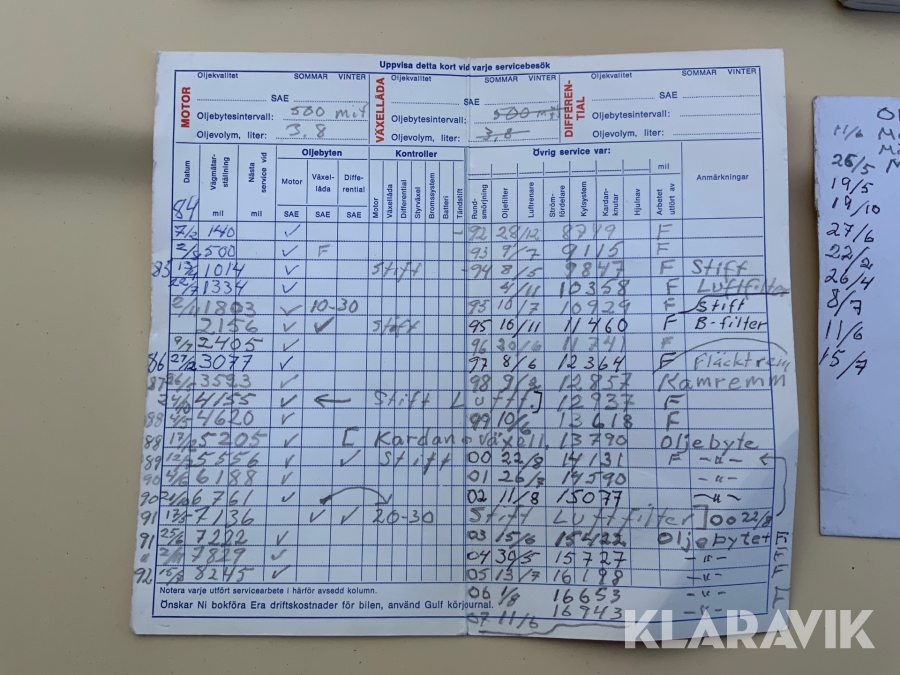 Uppvisa detta kort vid varje servicebesök
MOTOR
Oljekvalitet SOMMAR VINTER
SAE
Oljebytesintervall: 500 mil
Oljevolym, liter: 3,8
VÄXELLÅDA
Oljekvalitet SOMMAR VINTER
SAE
Oljebytesintervall: 500 mil
Oljevolym, liter: 3,8
DIFFEREN-TIAL
Oljekvalitet SOMMAR VINTER
SAE
Oljebytesintervall:
Oljevolym, liter:
Datum Vägmätarställning Nästa service vid Oljebyten Kontroller Övrig service var: mil
Motor Växel-låda Diffe-rential Motor Växellåda Differential Styrväxel Bromssystem Batteri Tändstift Rund-smörjning Oljefilter Luftrenare Ström-fördelare Kylsystem Kardan-knutar Hjulnav Arbetet utfört av Anmärkningar
84 mil mil SAE SAE SAE
7/2 140 ✓ - 92 28/12 8799 F
500 ✓ F 93 9/7 9115 F
85 1014 ✓ Stift - 94 8/5 9847 F Stift
1334 ✓ 4/11 10358 F Luftfilter
1803 ✓ 10-30 95 10/7 10929 F Stift
2156 ✓ ✓ Stift 95 16/11 11460 F B-filter
9/7 2405 ✓ 96 20/6 11741 F
86 27/2 3077 ✓ 97 8/6 12364 F Fläktrem
87 3593 ✓ 98 12857 Kamremm
4155 ✓ ← Stift Luftf] 12937 F
88 4/5 4620 ✓ 99 10/6 13618 F
88 17/2 5205 ✓ [ Kardan o växell. 13790 oljebyte
89 12/2 5556 ✓ ✓ Stift 00 22/8 14131 F -"-
90 4/6 6188 ✓ 01 26/7 14590 -"-
90 6761 ✓ 02 11/8 15077 -"-
91 17/5 7136 ✓ ✓ 20-30 Stift Luftfilter] 00 22/8
91 25/6 7222 ✓ 03 15/6 15422 Oljebytet
7829 ✓ 04 30/5 15727 -"-
92 8245 ✓ 05 13/7 16198 -"-
06 1/8 16653 -"-
07 11/6 16943 -"-
Notera varje utfört servicearbete i härför avsedd kolumn.
Önskar Ni bokföra Era driftskostnader för bilen, använd Gulf körjournal.
11/6
26/5
19/5
19/10
27/6
22/2
26/4
8/7
11/6
15/7
KLARAVIK